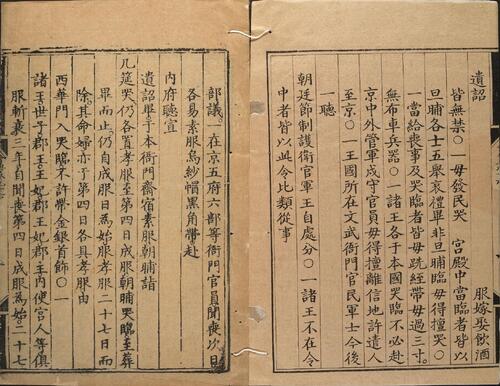 遺詔 服嫁娶飲酒
皆無禁○一毋發民哭 宮殿中當臨者皆以
旦晡各十五舉哀禮畢非旦晡臨毋得擅哭○
一當給喪事及哭臨者皆毋跣絰帶毋過三寸。
無布車兵器○一諸王各于本國哭臨不必赴
京中外管軍戍守官員毋得擅離信地許遣人
至京○一王國所在文武衙門官民軍士今後
一聽
朝廷節制護衛官軍王自處分○一諸王不在令
中者皆以此令比類從事
部議。在京五府六部等衙門官員聞喪次日
各易素服烏紗帽黑角帶赴
內府聽宣
遺詔畢于本衙門齋宿素服朝晡詣
几筵哭仍各置孝服至第四日成服朝晡哭臨至葬
畢而止仍自成服日為始服孝服二十七日而
除。其命婦亦于第四日各具孝服由
西華門入哭臨不許帶金銀首飾○一
諸王世子郡王王妃郡王妃郡主內使宮人等俱
服斬衰三年自聞喪第四日成服為始。二十七